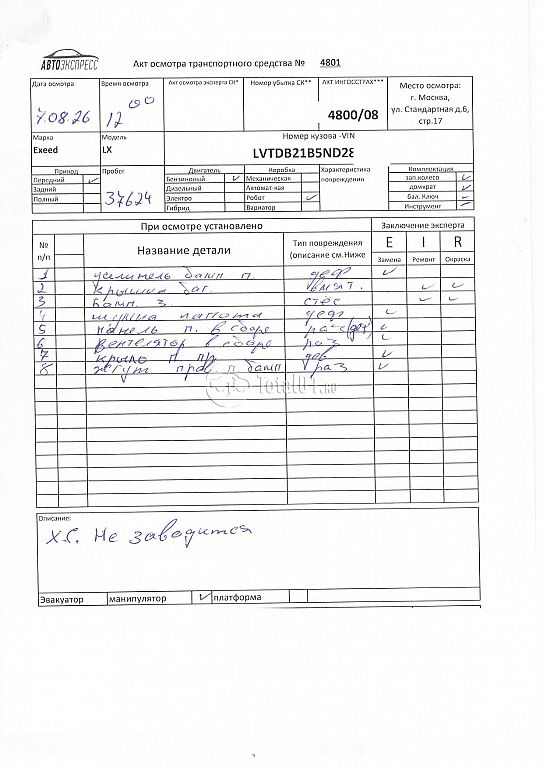 АВТОЭКСПРЕСС
Акт осмотра транспортного средства № 4801
Дата осмотра Время осмотра Акт осмотра эксперта СК* Номер убытка СК** АКТ ИНГОССТРАХ*** Место осмотра:
г. Москва,
ул. Стандартная д.6,
стр.17
7.08.26 12 00 4800/08
Марка Модель Номер кузова -VIN
Exeed LX LVTDB21B5ND28
Привод Пробег Двигатель Коробка Характеристика повреждения Комплектация
Передний Бензиновый Механическая зап.колесо
Задний Дизельный Автомат-кая домкрат
Полный 37624 Электро Робот бал. Ключ
Гибрид Вариатор Инструмент
При осмотре установлено Заключение эксперта
№ п/п Название детали Тип повреждения (описание см.Ниже E I R
Замена Ремонт Окраска
1 усилитель бамп п. деф
2 Крышка баг. вмят.
3 Бамп. з.
4 капота деф
5 панель п. в сборе
6 Вентелятор в сборе раз
7 крыло п пр деф
8 Жгут п бамп раз
Total01.ru
Описание:
Х.С. Не заводится
Эвакуатор манипулятор платформа